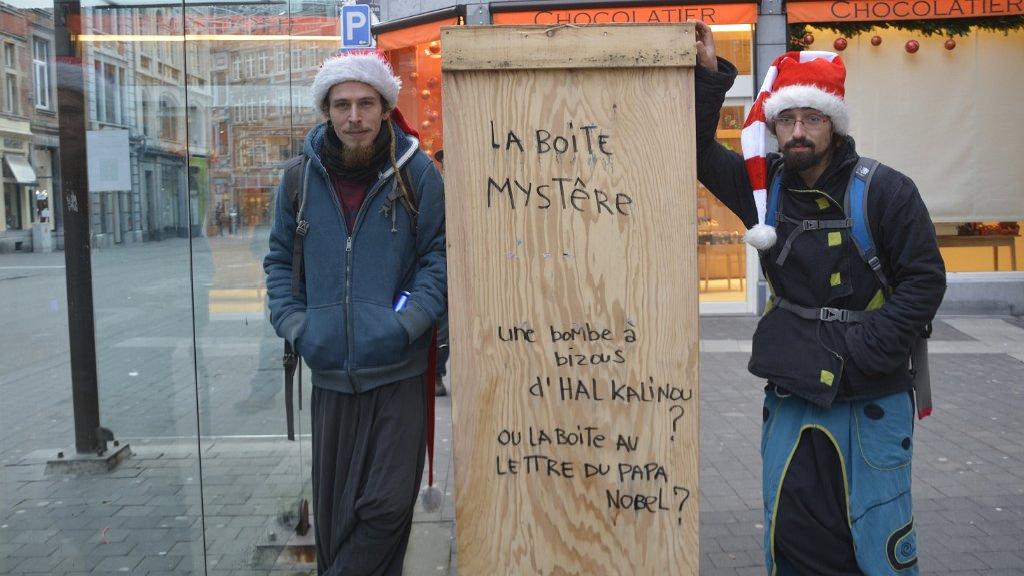 P
CHOCOLATIER
CHOCOLATIER
LA BOITE
MYSTÊRE
une bombe à
bizous
d'HALKALINOU
?
OU LA BOITE AU
LETTRE DU PAPA
NOBEL?